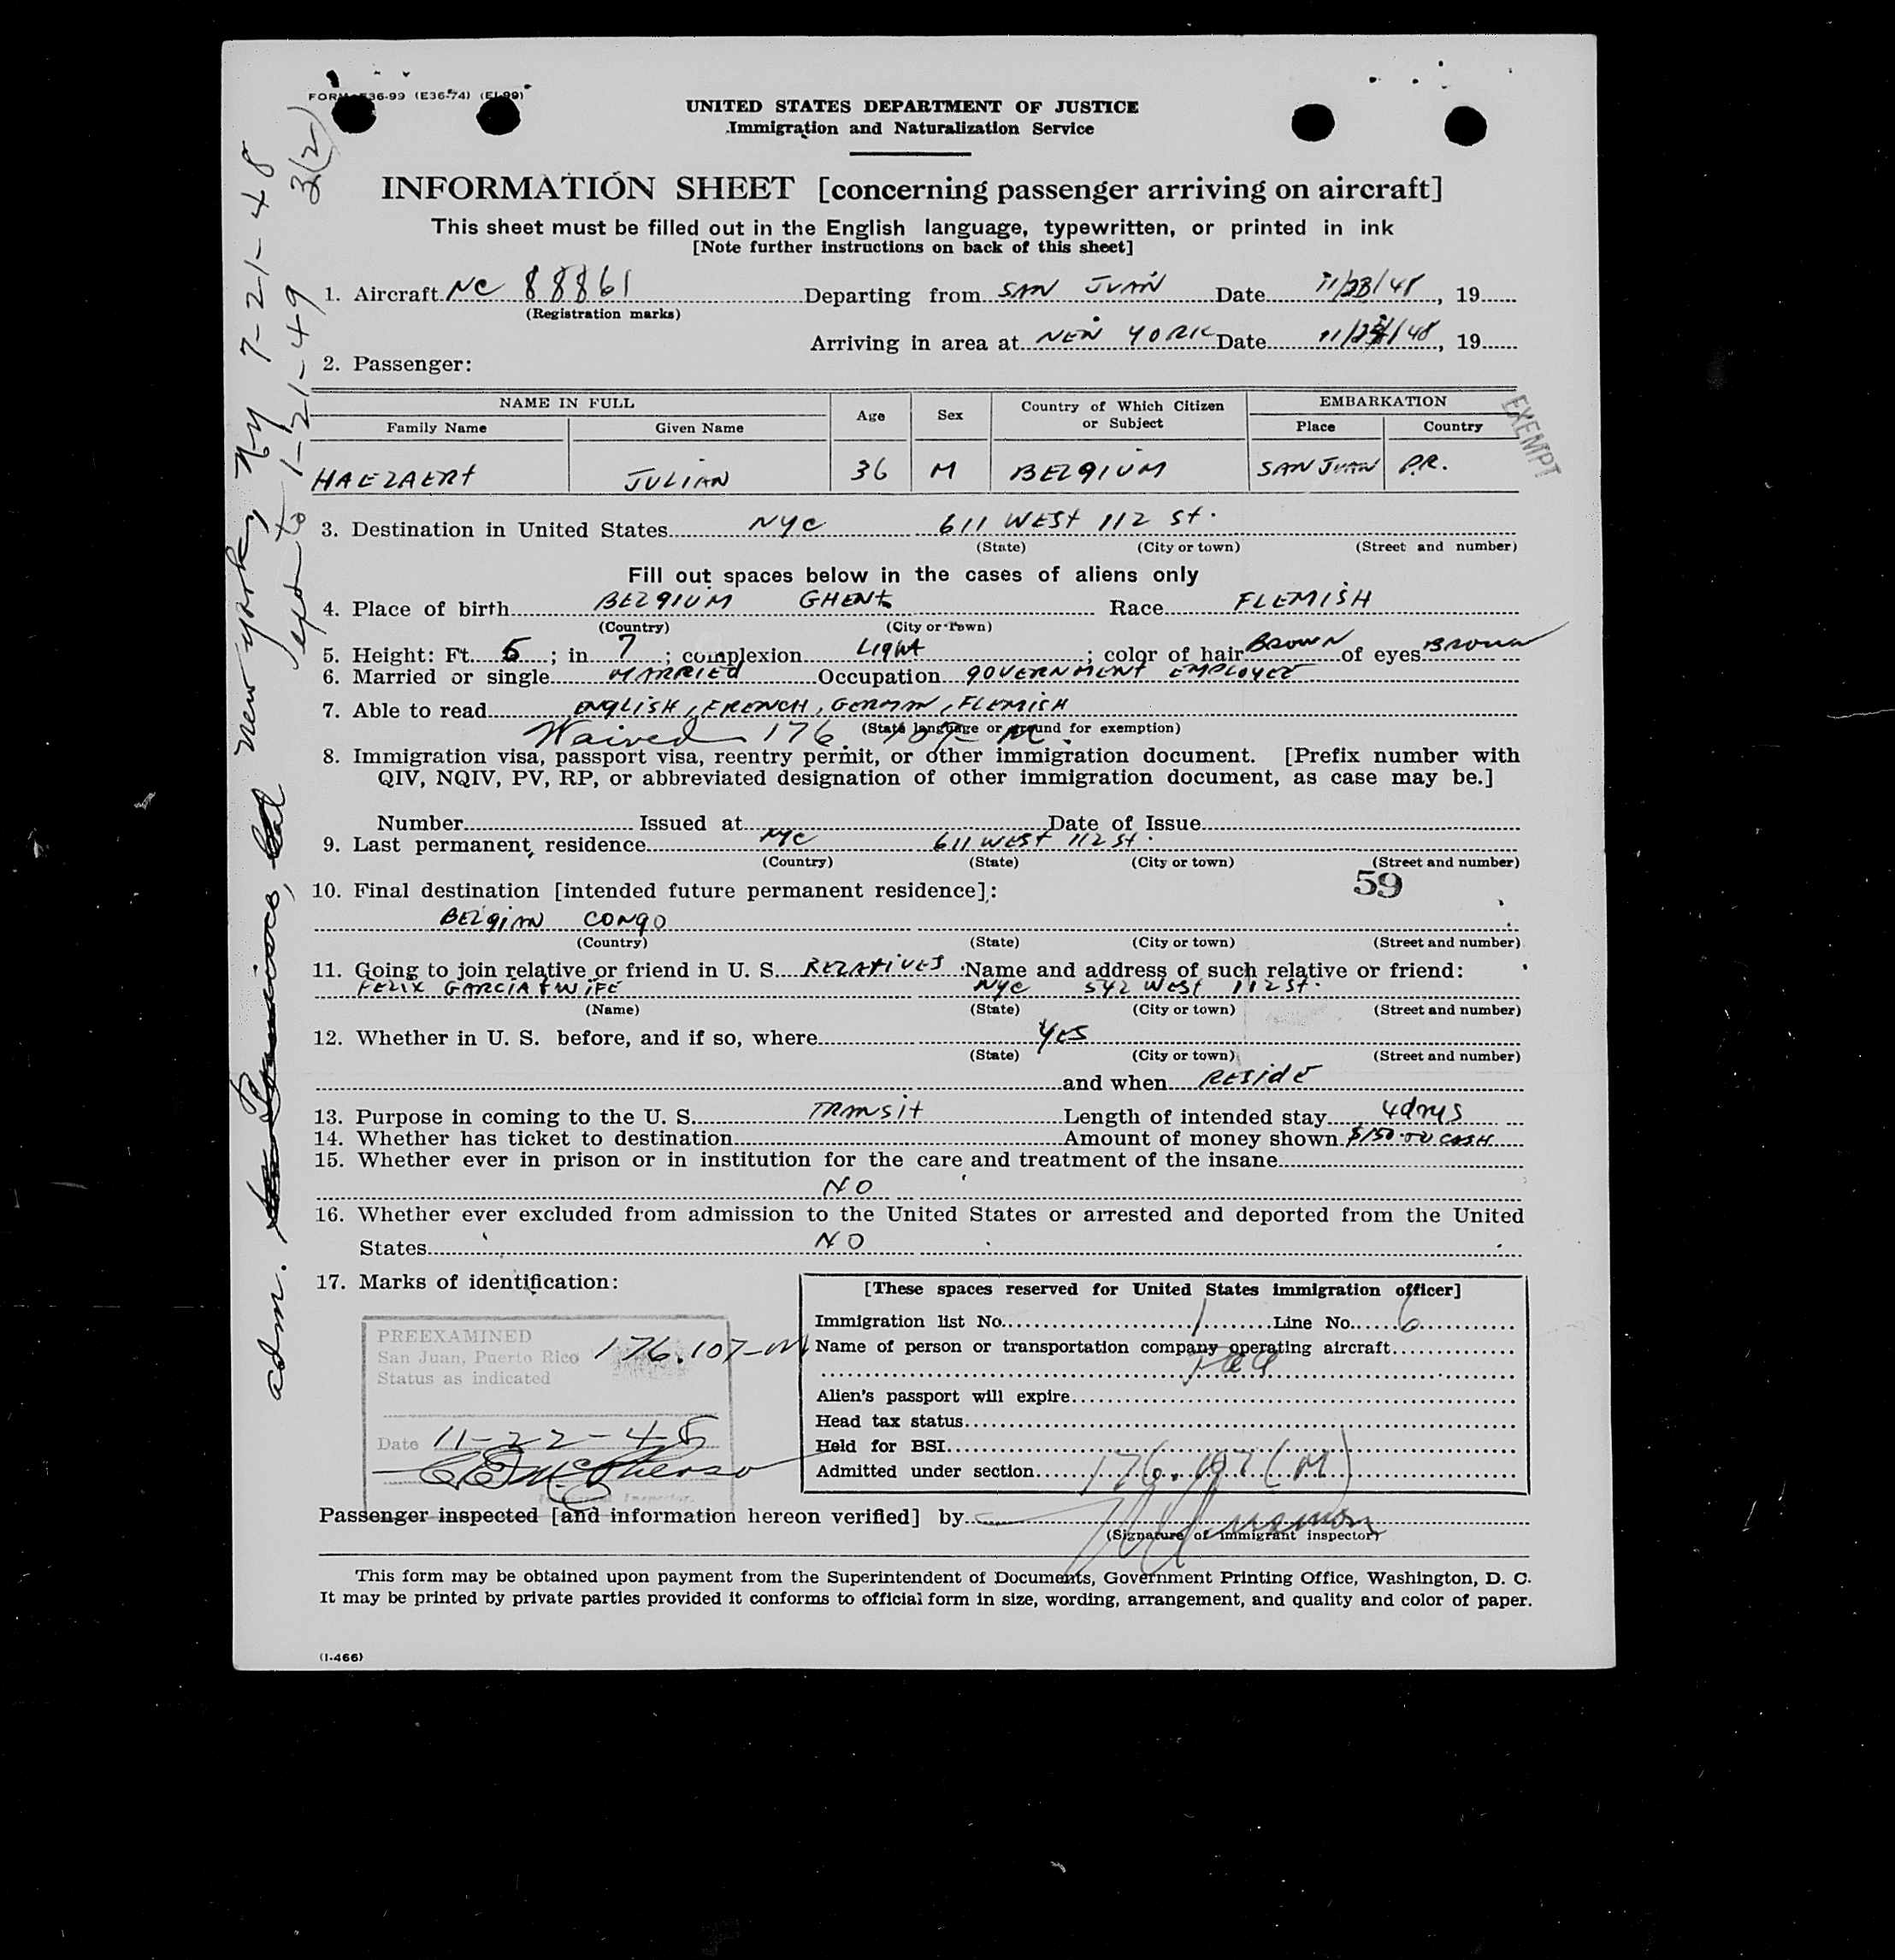 FORM I-36-99 (E36-74) (EI-99)
UNITED STATES DEPARTMENT OF JUSTICE
Immigration and Naturalization Service
INFORMATION SHEET [concerning passenger arriving on aircraft]
This sheet must be filled out in the English language, typewritten, or printed in ink
[Note further instructions on back of this sheet]
1. Aircraft NC 88861 Departing from SAN JUAN Date 11/23/48, 19
(Registration marks)
Arriving in area at NEW YORK Date 11/24/48, 19
2. Passenger:
NAME IN FULL Age Sex Country of Which Citizen or Subject EMBARKATION
Family Name Given Name Place Country
EXEMPT
HAEZAERT JULIAN 36 M BELGIUM SAN JUAN P.R.
3. Destination in United States NYC 611 WEST 112 St.
(State) (City or town) (Street and number)
Fill out spaces below in the cases of aliens only
4. Place of birth BELGIUM GHENT Race FLEMISH
(Country) (City or Town)
5. Height: Ft. 5; in 7; complexion Light; color of hair BROWN of eyes BROWN
6. Married or single MARRIED Occupation GOVERNMENT EMPLOYEE
7. Able to read ENGLISH, FRENCH, GERMAN, FLEMISH
(State language or ground for exemption)
Waived 176.107 M.
8. Immigration visa, passport visa, reentry permit, or other immigration document. [Prefix number with
QIV, NQIV, PV, RP, or abbreviated designation of other immigration document, as case may be.]
Number Issued at Date of Issue
9. Last permanent residence NYC 611 WEST 112 St.
(Country) (State) (City or town) (Street and number)
59
10. Final destination [intended future permanent residece]:
BELGIAN CONGO
(Country) (State) (City or town) (Street and number)
11. Going to join relative or friend in U. S. RELATIVES Name and address of such relative or friend:
FELIX GARCIA & WIFE NYC 542 West 112 St.
(Name) (State) (City or town) (Street and number)
12. Whether in U. S. before, and if so, where YES
(State) (City or town) (Street and number)
and when RESIDE
13. Purpose in coming to the U. S. TRANSIT Length of intended stay 4 days
14. Whether has ticket to destination Amount of money shown $150.00 CASH
15. Whether ever in prison or in institution for the care and treatment of the insane
NO
16. Whether ever excluded from admission to the United States or arrested and deported from the United
States NO
17. Marks of identification:
PREEXAMINED
San Juan, Puerto Rico 176.107-M
Status as indicated
Date 11-22-48
[These spaces reserved for United States immigration officer]
Immigration list No. 1 Line No. 6
Name of person or transportation company operating aircraft
Alien's passport will expire
Head tax status
Held for BSI
Admitted under section 176.107(M)
Passenger inspected [and information hereon verified] by
(Signature of immigrant inspector)
This form may be obtained upon payment from the Superintendent of Documents, Government Printing Office, Washington, D. C.
It may be printed by private parties provided it conforms to official form in size, wording, arrangement, and quality and color of paper.
(I-466)
adm. New York, NY 7-21-48
3(2)
to 1-21-49